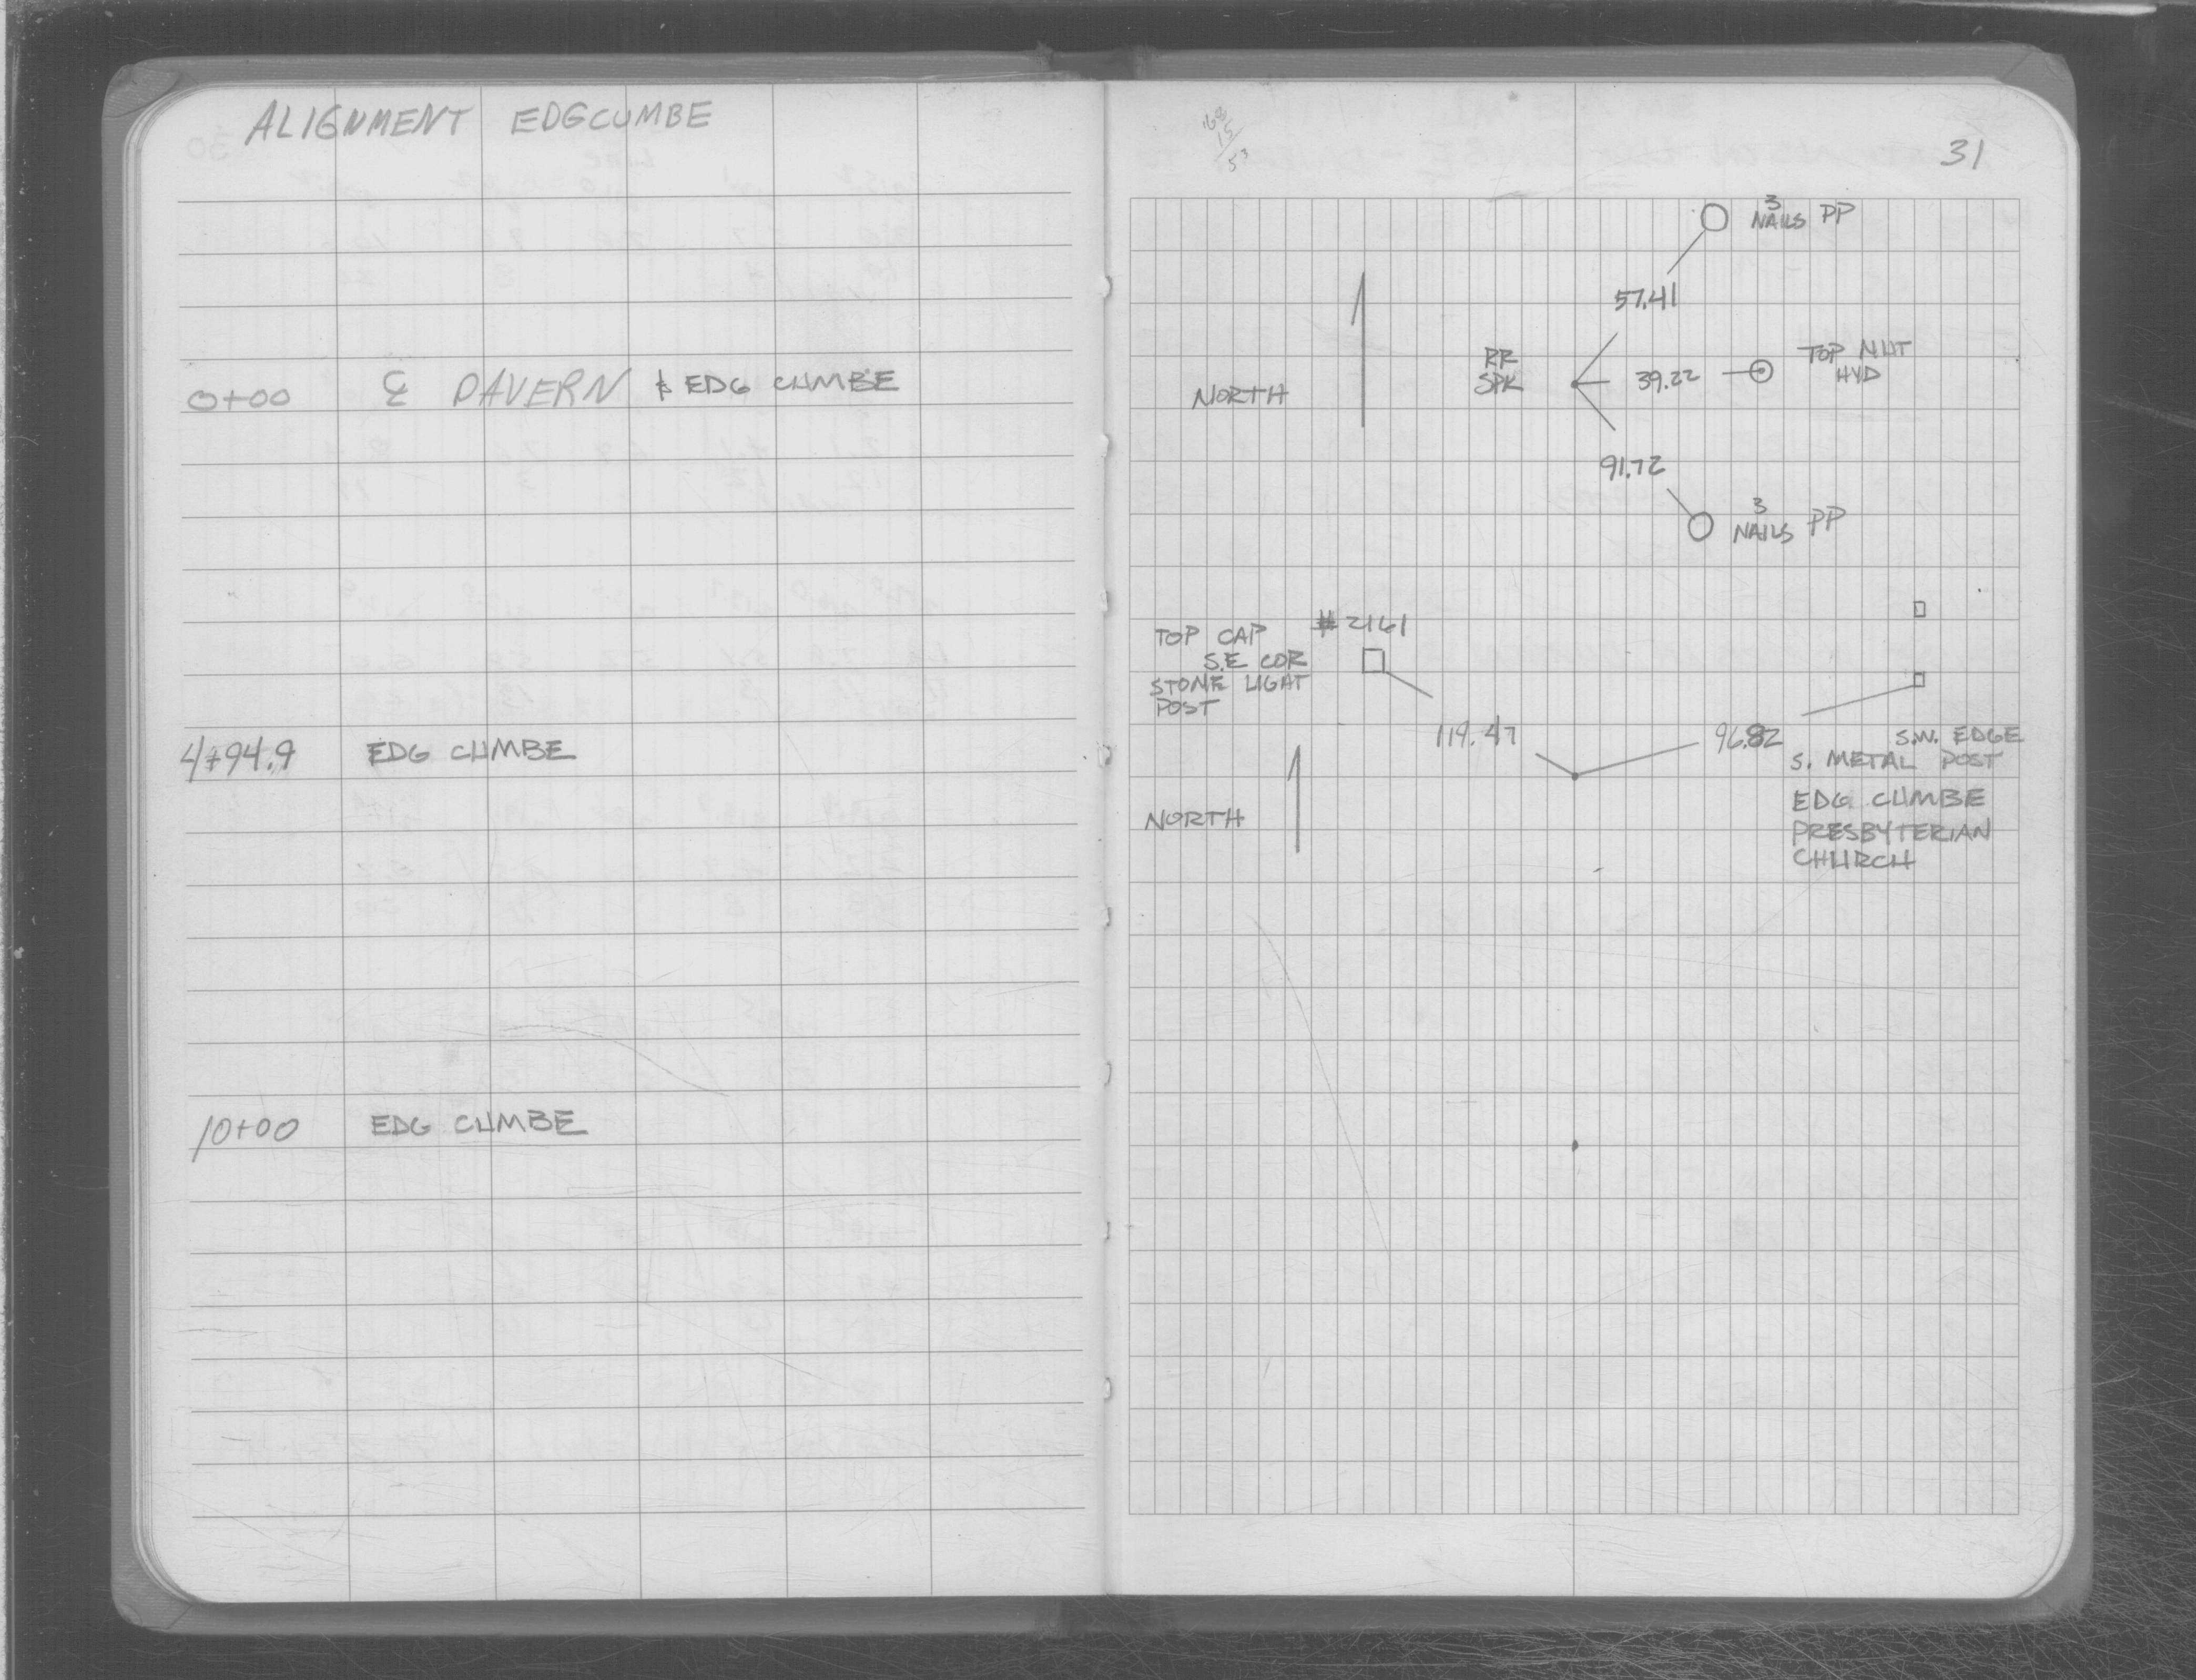 ALIGNMENT EDGCUMBE
0+00 Ɛ DAVERN & EDG CUMBE
4+94.9 EDG CUMBE
10+00 EDG CUMBE
31
3
NAILS PP
57.41
RR
SPK
39.22
TOP NUT
HYD
NORTH
91.72
3
NAILS PP
TOP CAP #2161
S.E COR
STONE LIGHT
POST
119.47
96.82
S.W. EDGE
S. METAL POST
EDG CUMBE
PRESBYTERIAN
CHURCH
NORTH